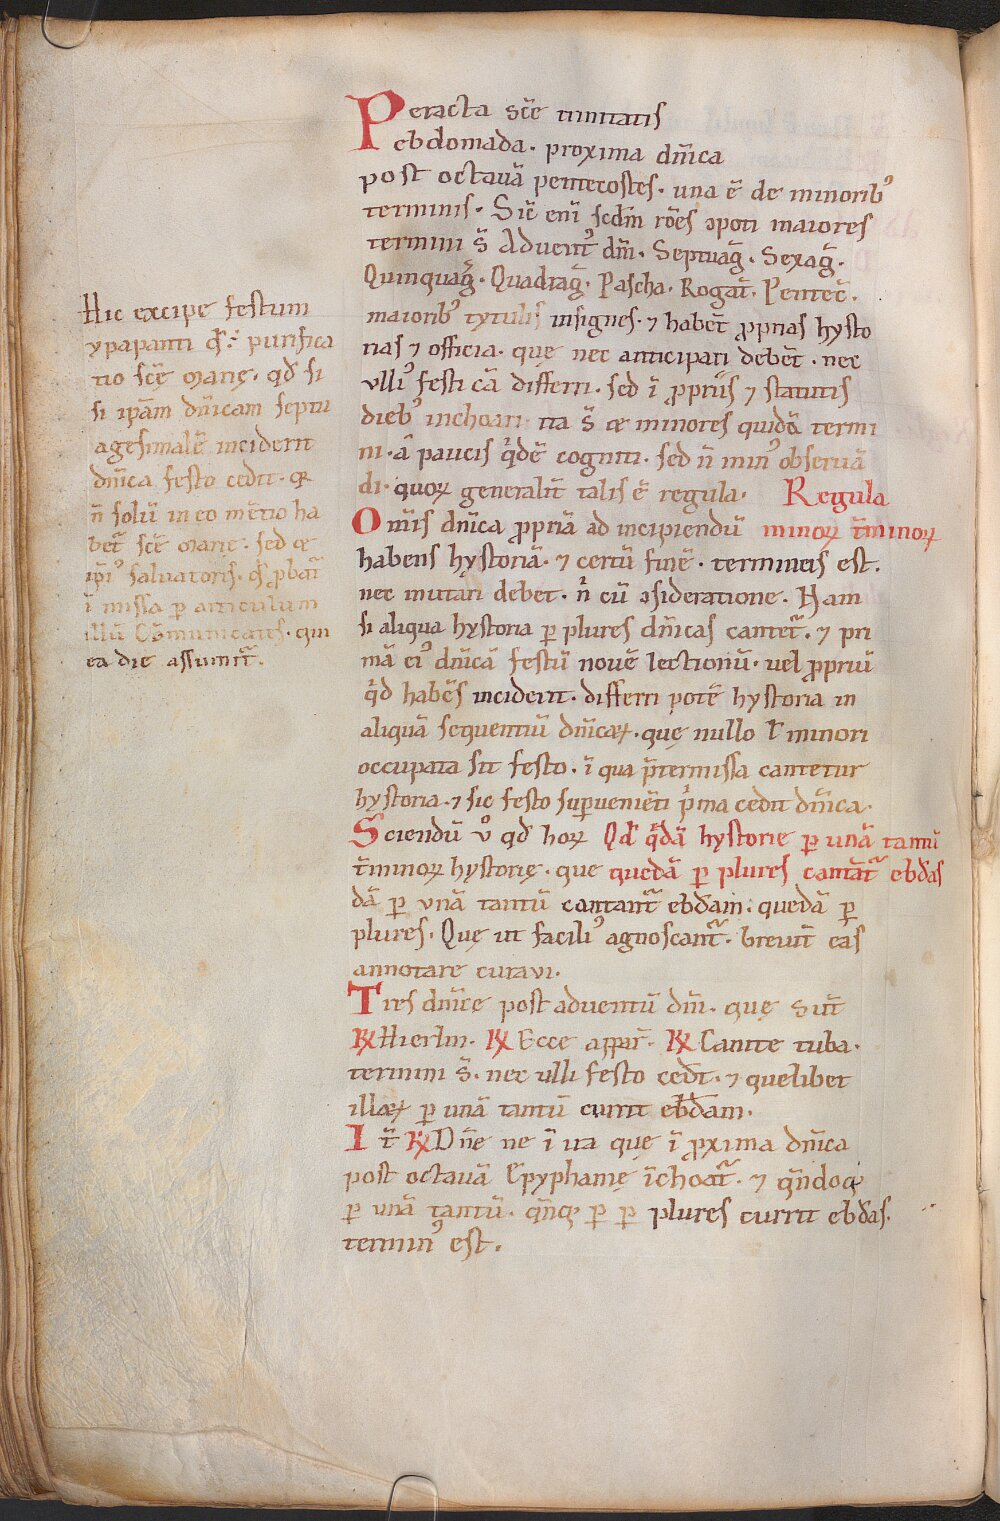 Peracta sc̄e trinitatis
ebdomada. proxima dn̄ica
post octauā pentecostes. una ē de minorib᾽
terminis. Sic̄ enī scdm̄ rōes ꝯpoti maiores
termini s̄ Aduent᾽ dn̄i. Septuaḡ. Sexaḡ.
Quinquaḡ. Quadraḡ. Pascha. Rogat̄. Pentec̄.
maiorib᾽ tytulis insignes. ⁊ habēt ꝓprias hysto
rias ⁊ officia. quę nec anticipari debēt. nec
vlli᾽ festi cā differri. sed ī ꝓpriis ⁊ statutis
dieb᾽ inchoari. ita s̄ ⁊ minores quidā termi
ni. ā paucis qͥdē cogniti. sed n̄ min᾽ obseruā
di. quoꝝ generalit̄ talis ē regula. Regula
Om̄is dn̄ica ꝓpriā ad incipiendū minoꝝ t̄minoꝝ
habens hystoriā. ⁊ certū finē. termineis est.
nec mutari debet. nͥ cū ꝯsideratione. Nam
si aliqua hystoria ꝑ plures dn̄icas cantet᷑. ⁊ pri
mā ei᾽ dn̄icā festū nouē lectionū. vel ꝓpriū
qͥd habēs inciderit. differri potē hystoria in
aliquā sequentiū dn̄icaꝝ. quę nullo ł minori
occupata sit festo. ī qua p̄termissa cantetur
hystoria. ⁊ sic festo suꝑueniēti pͥma cedit dn̄ica.
Sciendū vͦ qđ hoꝝ Qđ q̄dā hystorię ꝑ unā tantū
t̄minoꝝ hystorię. que quedā ꝑ plures cantāt᷑ ebđas
dā ꝑ vnā tantū cantant᷑ ebdam. quedā ꝑ
plures. Quę ut facili᾽ agnoscant᷑. breuit̄ eas
annotare curaui.
Tres dn̄icę post aduentū dn̄i. quę sūt
℟ Hierłm. ℟ Ecce appar̄. ℟ Canite tuba.
termini s̄. nec ulli festo cedt̄. ⁊ quelibet
illaꝝ ꝑ unā tantū currit ebđam.
It̄ ℟ Dn̄e ne ī ira quę ī ꝓxima dn̄ica
post octauā Epyphanię īchoat᷑. ⁊ qn̄doꝙ
ꝑ unā tantū. qn̄qꝫ ꝑ ꝑ plures currit ebđas.
termin᾽ est.
Hic excipe festum
ypapanti qđ ē purifica
tio scē Marię. qđ si
si ipām dn̄icam septu
agesimalē inciderit
dn̄ica festo cedit. qꝛ
n̄ solū in eo mētio ha
bet᷑ scē Marie. sed ⁊
ipi᾽ saluatoris. qđ ꝓbat᷑
ī missa ꝑ articulum
illū Cōmunicantes. qui
ea die assumit᷑.